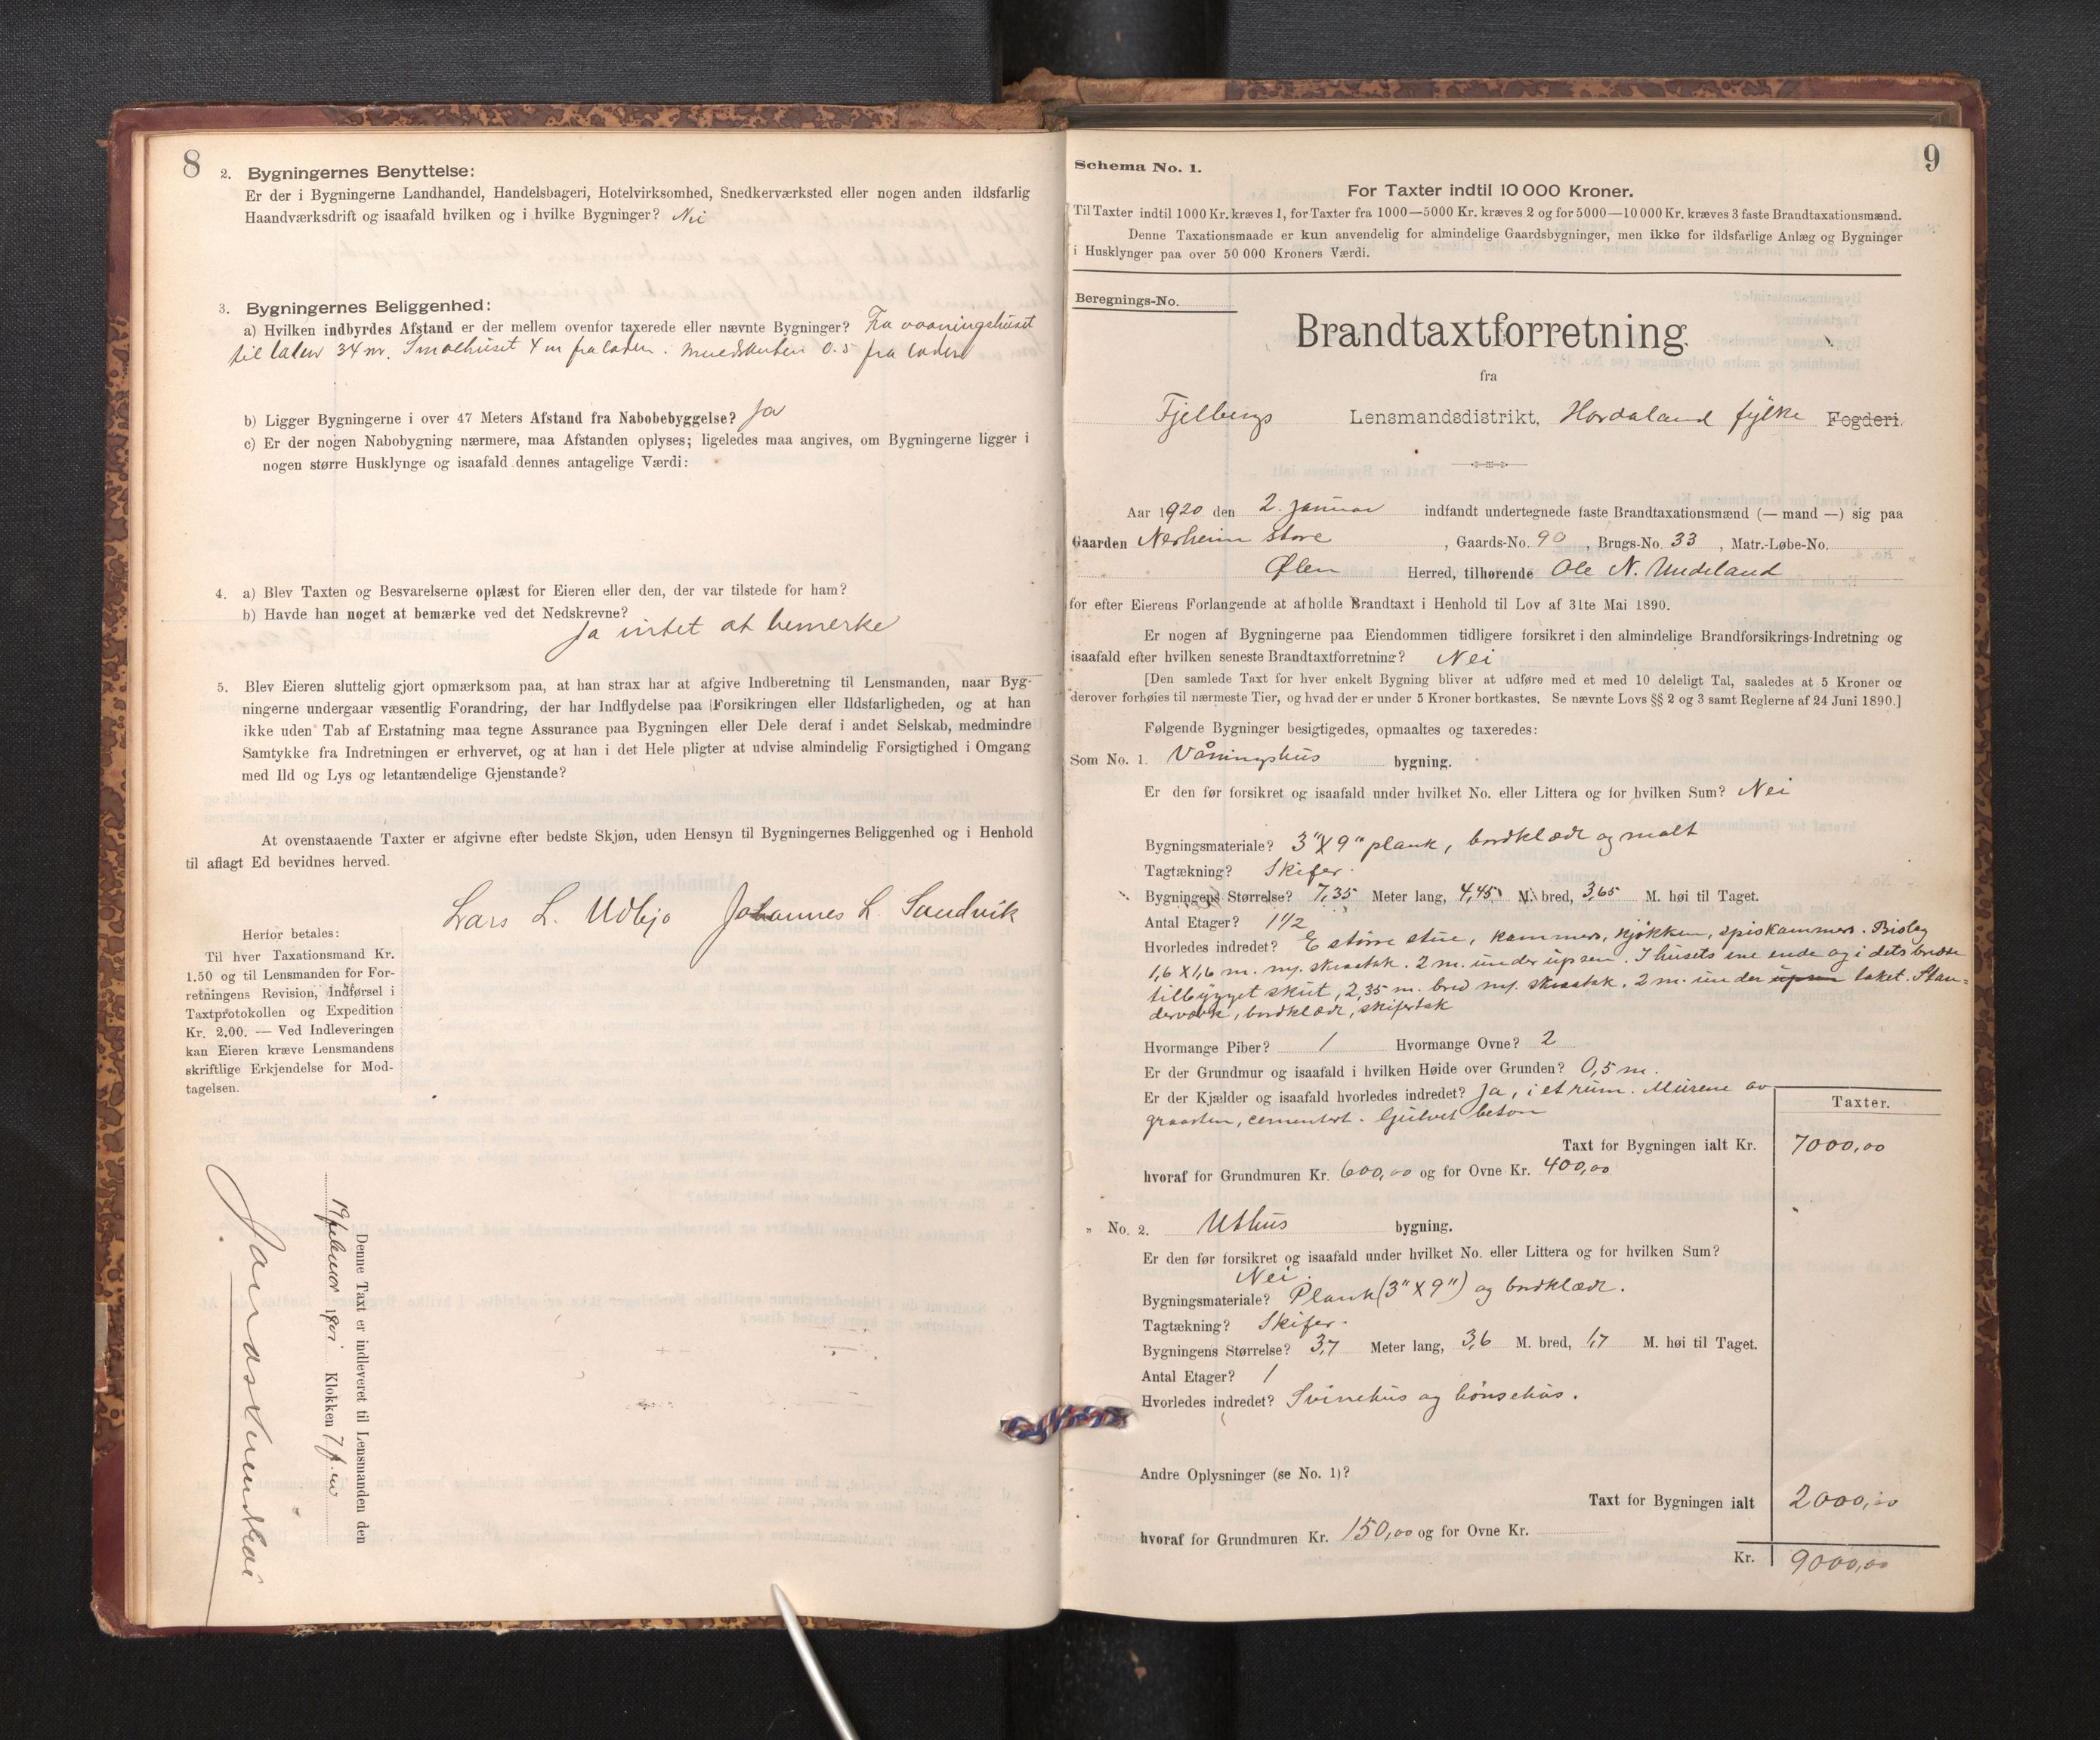 8
2. Bygningernes Benyttelse:
Er der i Bygningerne Landhandel, Handelsbageri, Hotelvirksomhed, Snedkerværksted eller nogen anden ildsfarlig
Haandværksdrift og isaafald hvilken og i hvilke Bygninger? Nei
3. Bygningernes Beliggenhed:
a) Hvilken indbyrdes Afstand er der mellem ovenfor taxerede eller nævnte Bygninger? Fra vaaningshuset
til laden 34 m. Smalehuset 4 m fra laden. 0.5 fra laden
b) Ligger Bygningerne i over 47 Meters Afstand fra Nabobebyggelse? Ja
c) Er der nogen Nabobygning nærmere, maa Afstanden oplyses; ligeledes maa angives, om Bygningerne ligger i
nogen større Husklynge og isaafald dennes antagelige Værdi:
4. a) Blev Taxten og Besvarelserne oplæst for Eieren eller den, der var tilstede for ham?
b) Havde han noget at bemærke ved det Nedskrevne?
Ja intet at bemerke
5. Blev Eieren sluttelig gjort opmærksom paa, at han strax har at afgive Indberetning til Lensmanden, naar Byg-
ningerne undergaar væsentlig Forandring, der har Indflydelse paa Forsikringen eller Ildsfarligheden, og at han
ikke uden Tab af Erstatning maa tegne Assurance paa Bygningen eller Dele deraf i andet Selskab, medmindre
Samtykke fra Indretningen er erhvervet, og at han i det Hele pligter at udvise almindelig Forsigtighed i Omgang
med Ild og Lys og letantændelige Gjenstande?
At ovenstaaende Taxter er afgivne efter bedste Skjøn, uden Hensyn til Bygningernes Beliggenhed og i Henhold
til aflagt Ed bevidnes herved.
Lars L. Udbjo Johannes L. Sandvik
Herfor betales:
Til hver Taxationsmand Kr.
1.50 og til Lensmanden for For-
retningens Revision, Indførsel i
Taxtprotokollen og Expedition
Kr. 2.00. — Ved Indleveringen
kan Eieren kræve Lensmandens
skriftlige Erkjendelse for Mod-
tagelsen.
Denne Taxt er indleveret til Lensmanden den
19 februar Klokken 7 f.m
9
Schema No. 1.
For Taxter indtil 10 000 Kroner.
Til Taxter indtil 1000 Kr. kræves 1, for Taxter fra 1000—5000 Kr. kræves 2 og for 5000—10 000 Kr. kræves 3 faste Brandtaxationsmænd.
Denne Taxationsmaade er kun anvendelig for almindelige Gaardsbygninger, men ikke for ildsfarlige Anlæg og Bygninger
i Husklynger paa over 50 000 Kroners Værdi.
Beregnings-No.
Brandtaxtforretning
fra
Fjelbergs Lensmandsdistrikt, Hordaland fylke Fogderi.
Aar 1920 den 2. januar indfandt undertegnede faste Brandtaxationsmænd (— mand —) sig paa
Gaarden Nerheim store, Gaards-No. 90, Brugs-No. 33, Matr.-Løbe-No.
Ølen Herred, tilhørende Ole N. Undeland
for efter Eierens Forlangende at afholde Brandtaxt i Henhold til Lov af 31te Mai 1890.
Er nogen af Bygningerne paa Eiendommen tidligere forsikret i den almindelige Brandforsikrings-Indretning og
isaafald efter hvilken seneste Brandtaxtforretning? Nei
[Den samlede Taxt for hver enkelt Bygning bliver at udføre med et med 10 deleligt Tal, saaledes at 5 Kroner og
derover forhøies til nærmeste Tier, og hvad der er under 5 Kroner bortkastes. Se nævnte Lovs §§ 2 og 3 samt Reglerne af 24 Juni 1890.]
Følgende Bygninger besigtigedes, opmaaltes og taxeredes:
Som No. 1. Våningshus bygning.
Er den før forsikret og isaafald under hvilket No. eller Littera og for hvilken Sum? Nei
Bygningsmateriale? 3"X9" plank, bordklædt og malt
Tagtækning? Skifer.
Bygningens Størrelse? 7,35 Meter lang, 4,45 M. bred, 3,65 M. høi til Taget.
Antal Etager? 1 1/2
Hvorledes indredet? E større stue, kammers, kjøkken, spiskammers. Bislag
1,6 X 1,6 m. m. skraatak. 2 m. under upsen. I husets ene ende og i dets bredde
tilbygget skut, 2,35 m. bred m. skraatak. 2 m. under upsen taket. Stan-
derverk, bordklædt, skifertak
Hvormange Piber? 1 Hvormange Ovne? 2
Er der Grundmur og isaafald i hvilken Høide over Grunden? 0,5 m.
Er der Kjælder og isaafald hvorledes indredet? Ja, i et rum. Murene av
graasten, cementert. Gulvet beton
Taxter.
Taxt for Bygningen ialt Kr. 7000,00
hvoraf for Grundmuren Kr. 600,00 og for Ovne Kr. 400,00
„ No. 2. Uthus bygning.
Er den før forsikret og isaafald under hvilket No. eller Littera og for hvilken Sum?
Nei.
Bygningsmateriale? Plank (3"X9") og bordklædt.
Tagtækning? Skifer.
Bygningens Størrelse? 3,7 Meter lang, 3,6 M. bred, 1,7 M. høi til Taget.
Antal Etager? 1
Hvorledes indredet? Svinehus og hönsehus.
Andre Oplysninger (se No. 1)?
Taxt for Bygningen ialt 2000,00
hvoraf for Grundmuren Kr. 150,00 og for Ovne Kr.
Kr. 9000,00